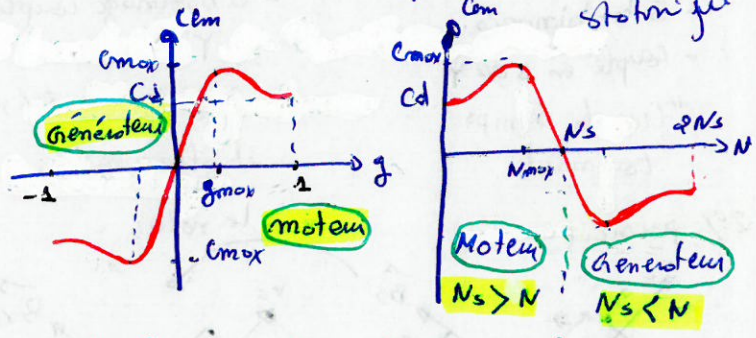 Cem
Cmax
Cd
Générateur
-1
gmax
1
g
moteur
- Cmax
Cem
statorique
Cmax
Cd
Ns
2Ns
Nmax
N
Moteur
Générateur
Ns > N
Ns < N